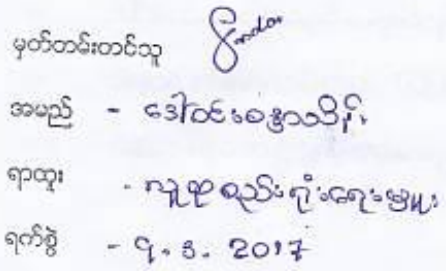 မှတ်တမ်းတင်သူ
အမည် - ဒေါ်ဝင်းစန္ဒာသိန်း
ရာထူး - လူစုစည်းရုံးရေးမှူး
ရက်စွဲ - ၎.၁. 2017